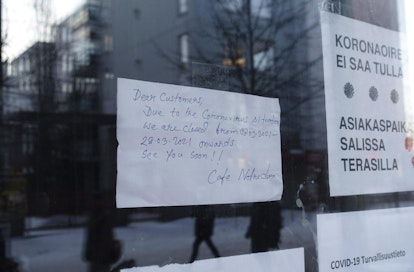 Dear Customers,
Due to the Coronavirus Situation
We are closed from 08.03.2021-
28.03.2021 onwards.
See You Soon!!
Cafe
KORONAOIRE
EI SAA TULLA
ASIAKASPAIK
SALISSA
TERASILLA
COVID-19 Turvallisuustieto